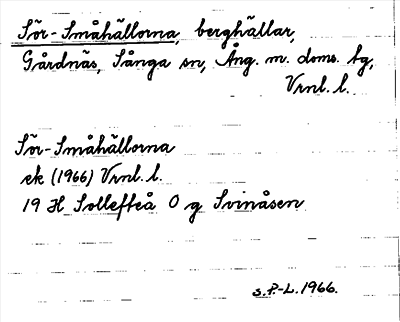 Sör-Småhällorna, berghällar,
Gårdnäs, Sånga sn, Ång. m. doms. tg,
Vrnl. l.
Sör-Småhällorna
ek (1966) Vrnl. l.
19 H Sollefteå O g Svinåsen
s. P.-L. 1966.